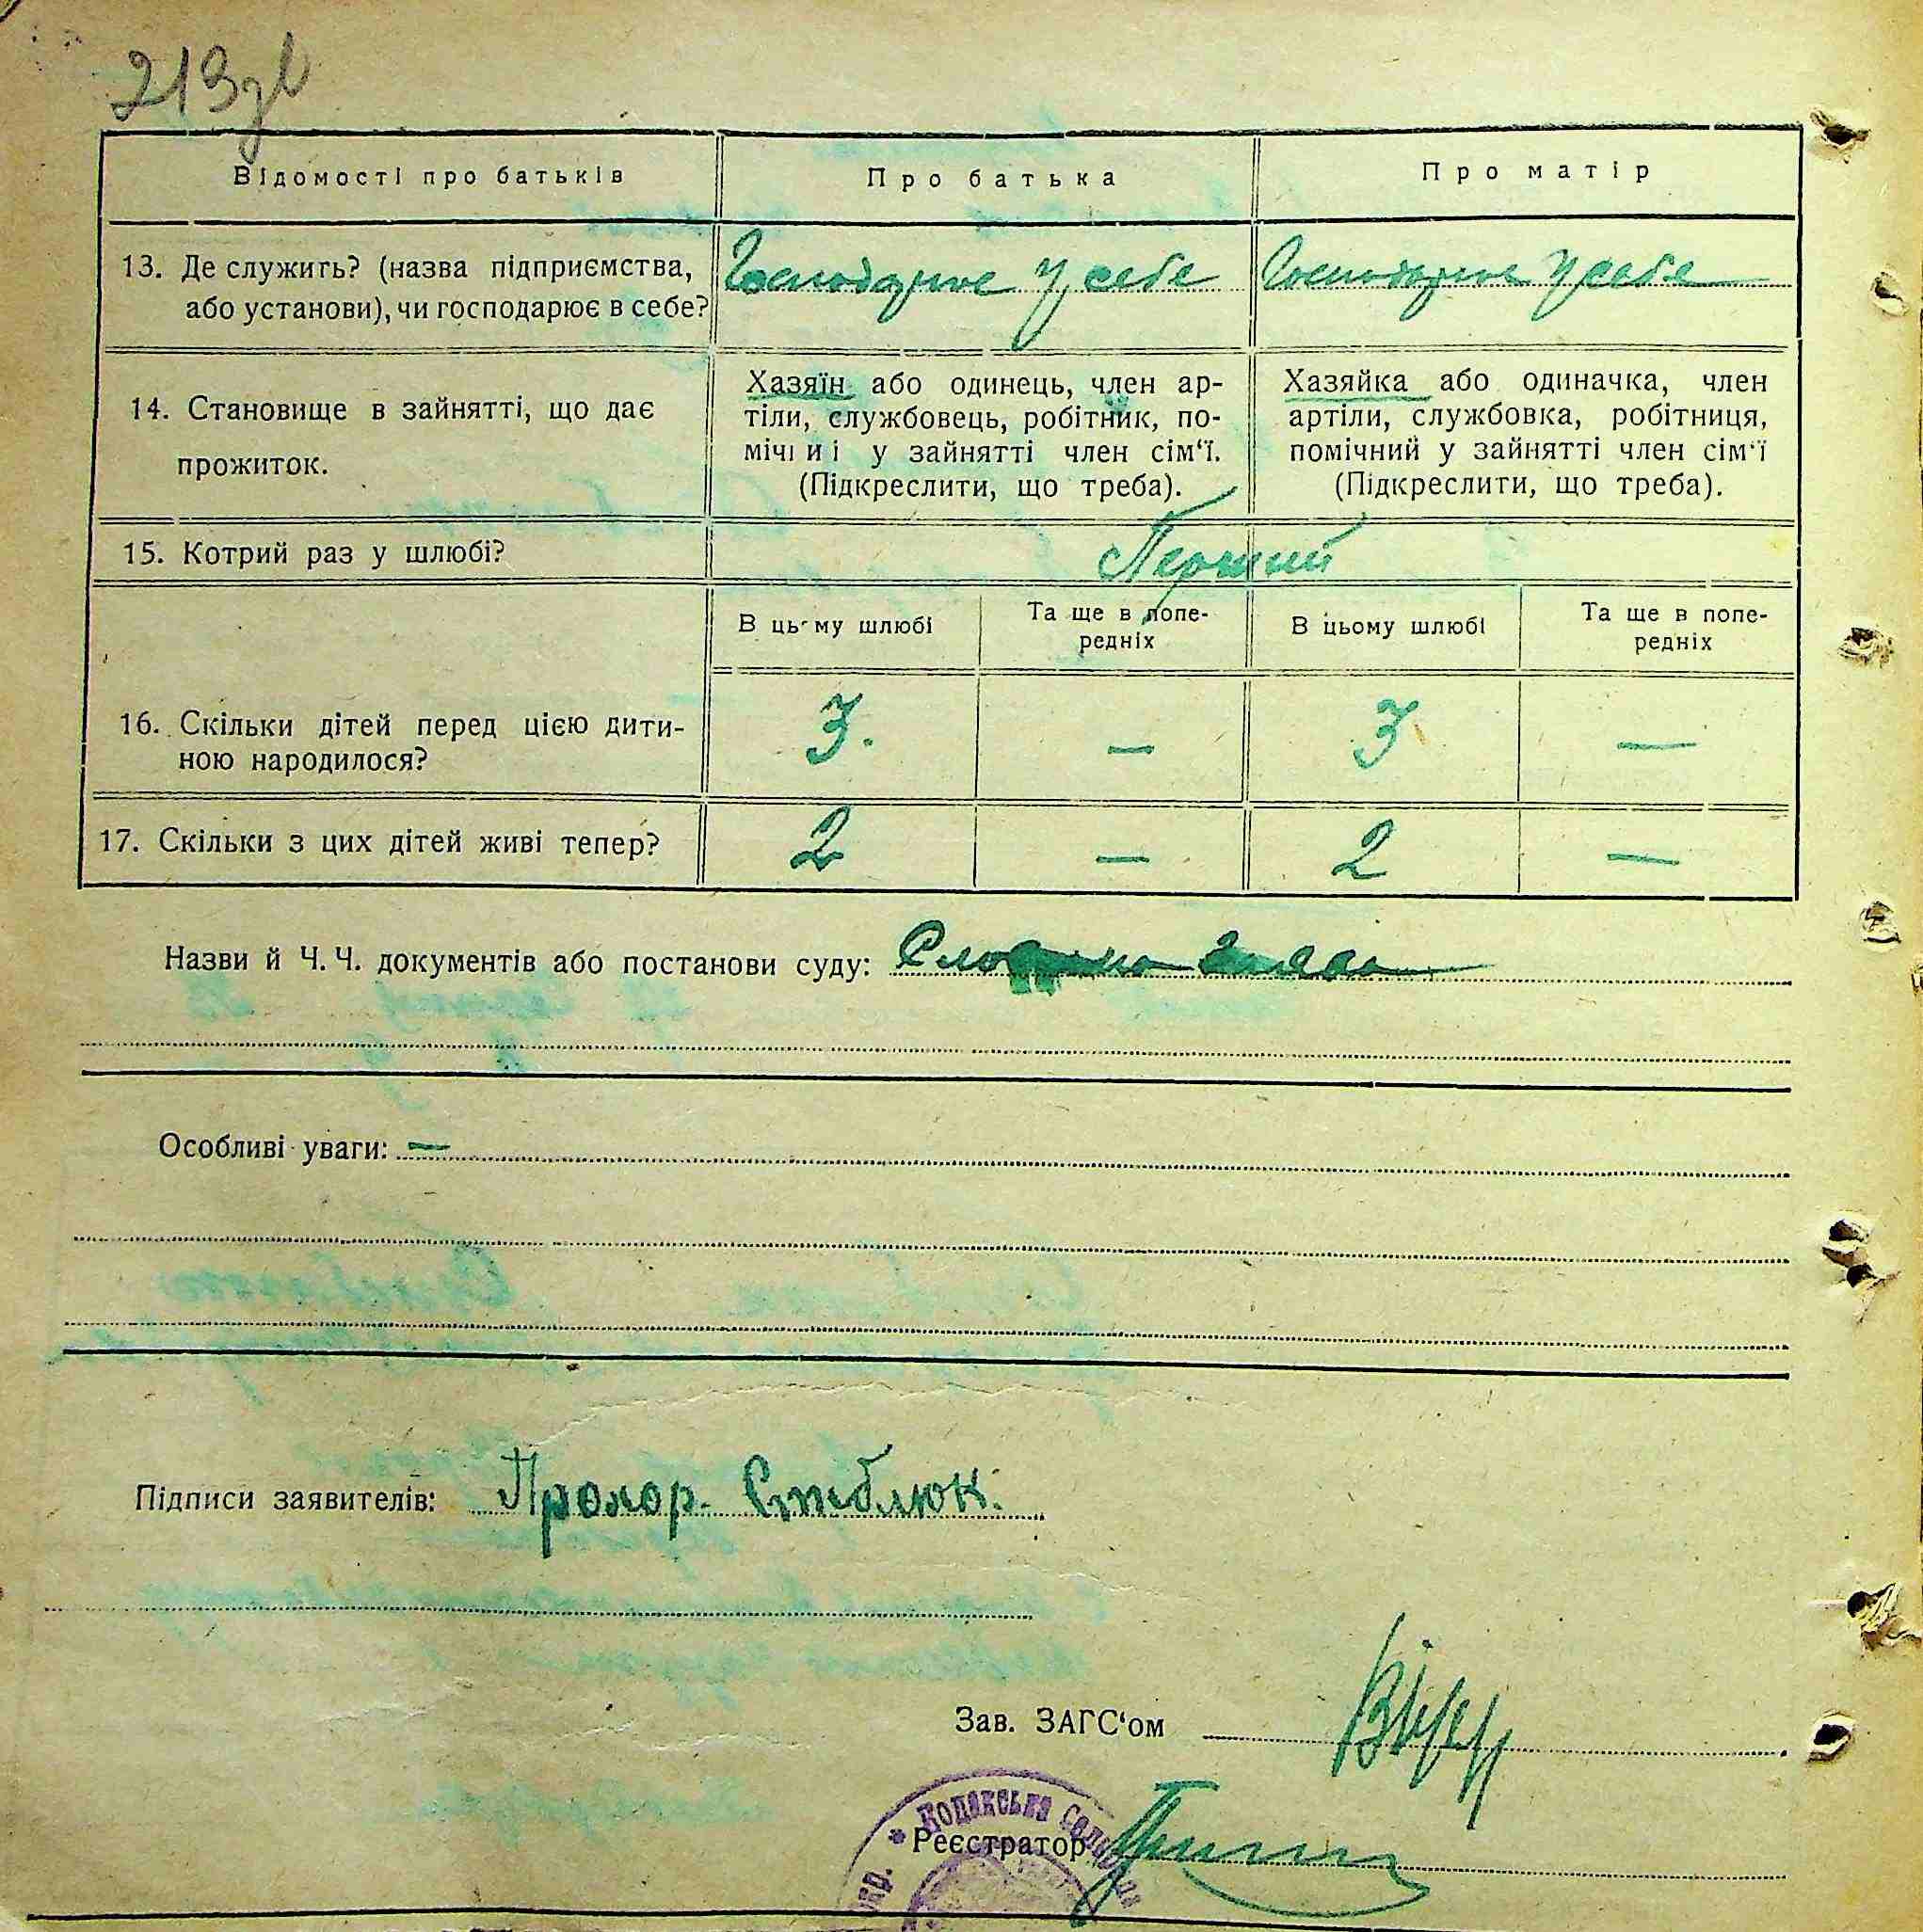 219зв
Відомості про батьків
Про батька
Про матір
13. Де служить? (назва підприємства,
або установи), чи господарює в себе?
Господарює у себе
Господарює у себе
14. Становище в зайнятті, що дає
прожиток.
Хазяїн або одинець, член ар-
тіли, службовець, робітник, по-
мічний у зайнятті член сім‘ї.
(Підкреслити, що треба).
Хазяйка або одиначка, член
артіли, службовка, робітниця,
помічний у зайнятті член сім‘ї
(Підкреслити, що треба).
15. Котрий раз у шлюбі?
Перший
В цьому шлюбі
Та ще в попе-
редніх
В цьому шлюбі
Та ще в попе-
редніх
16. Скільки дітей перед цією дити-
ною народилося?
3. — 3 —
17. Скільки з цих дітей живі тепер?
2 — 2 —
Назви й Ч. Ч. документів або постанови суду:
Особливі уваги: —
Підписи заявителів: Прохор. Стеблюк.
Зав. ЗАГС‘ом
Реєстратор
Кодакська
окр.